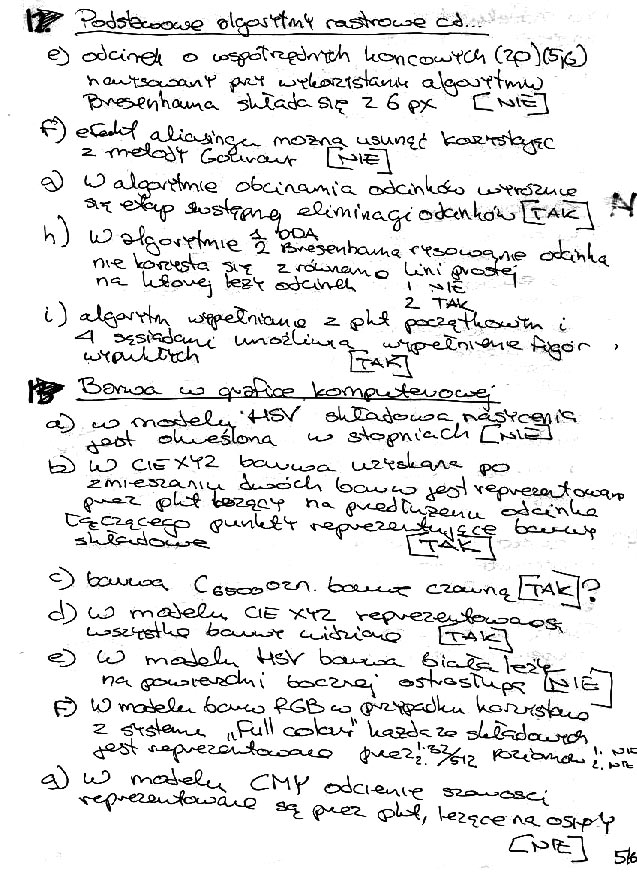 12 Podstawowe algorytmy rastrowe cd...
e) odcinek o współrzędnych końcowych (2,0) (5,6)
narysowany przy wykorzystaniu algorytmu
Bresenhama składa się z 6 px [NIE]
f) efekt aliasingu można usunąć korzystając
z metody Gouraut [NIE]
g) W algorytmie obcinania odcinków wyróżnia
się etap wstępnej eliminacji odcinków [TAK] N
h) W algorytmie 1 DDA
2 Bresenhama rysowanie odcinka
nie korzysta się z równania lini prostej
na której leży odcinek 1 NIE
2 TAK
i) algorytm wypełniania z pkt początkowym i
4 sąsiadami umożliwia wypełnienie figur
wypukłych [TAK]
13 Barwa w grafice komputerowej
a) w modelu HSV składowa nasycenia
jest określona w stopniach [NIE]
b) W CIE XYZ barwa uzyskana po
zmieszaniu dwóch barw jest reprezentowana
przez pkt leżący na przedłużeniu odcinka
łączącego punkty reprezentujące barwy
składowe [TAK]
c) barwa C6500 ozn. barwę czarną [TAK]?
d) W modelu CIE XYZ reprezentowane są
wszystkie barwy widzialne [TAK]
e) W modelu HSV barwa biała leży
na powierzchni bocznej ostrosłupa [NIE]
f) W modelu barw RGB w przypadku korzystania
z systemu "Full colour" każda ze składowych
jest reprezentowana przez 1. 32/ 2. 512 poziomów 1. NIE 2. NIE
g) W modelu CMY odcienie szarości
reprezentowane są przez pkt, leżące na osi
[NIE]
5/6